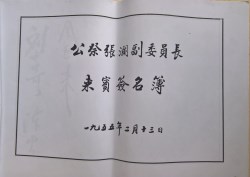 公祭張瀾副委員長
來賓簽名簿
一九五五年二月十三日